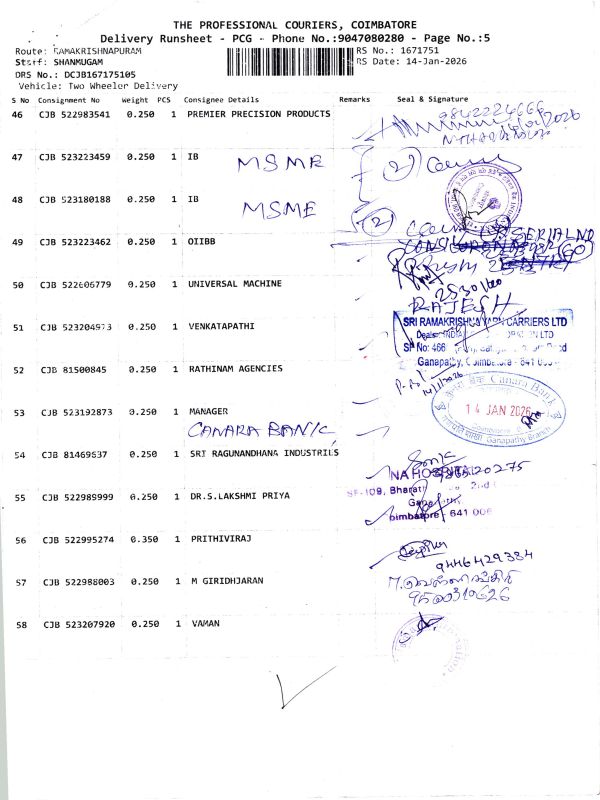 THE PROFESSIONAL COURIERS, COIMBATORE
Delivery Runsheet - PCG - Phone No.:9047080280 - Page No.:5
Route: RAMAKRISHNAPURAM RS No.: 1671751
Staff: SHANMUGAM RS Date: 14-Jan-2026
DRS No.: DCJB167175105
Vehicle: Two Wheeler Delivery
S No Consignment No Weight PCS Consignee Details Remarks Seal & Signature
46 CJB 522983541 0.250 1 PREMIER PRECISION PRODUCTS
9842224666
47 CJB 523223459 0.250 1 IB
MSME
2
48 CJB 523180188 0.250 1 IB
MSME
2
49 CJB 523223462 0.250 1 OIIBB
SERIAL NO
50 CJB 522606779 0.250 1 UNIVERSAL MACHINE
RAJESH
51 CJB 523204973 0.250 1 VENKATAPATHI
SRI RAMAKRISHNA CARRIERS LTD
SF No: 466
Ganapathy, Coimbatore - 641
52 CJB 81500845 0.250 1 RATHINAM AGENCIES
14/1/2026
Canara Bank
14 JAN 2026
Ganapathy Branch
53 CJB 523192873 0.250 1 MANAGER
CANARA BANK,
54 CJB 81469637 0.250 1 SRI RAGUNANDHANA INDUSTRIES
55 CJB 522989999 0.250 1 DR.S.LAKSHMI PRIYA
NA HOSPITAL
SF-109, Bharati 2nd
oimbatore - 641 006
56 CJB 522995274 0.350 1 PRITHIVIRAJ
9446429384
57 CJB 522988003 0.250 1 M GIRIDHJARAN
9500310626
58 CJB 523207920 0.250 1 VAMAN